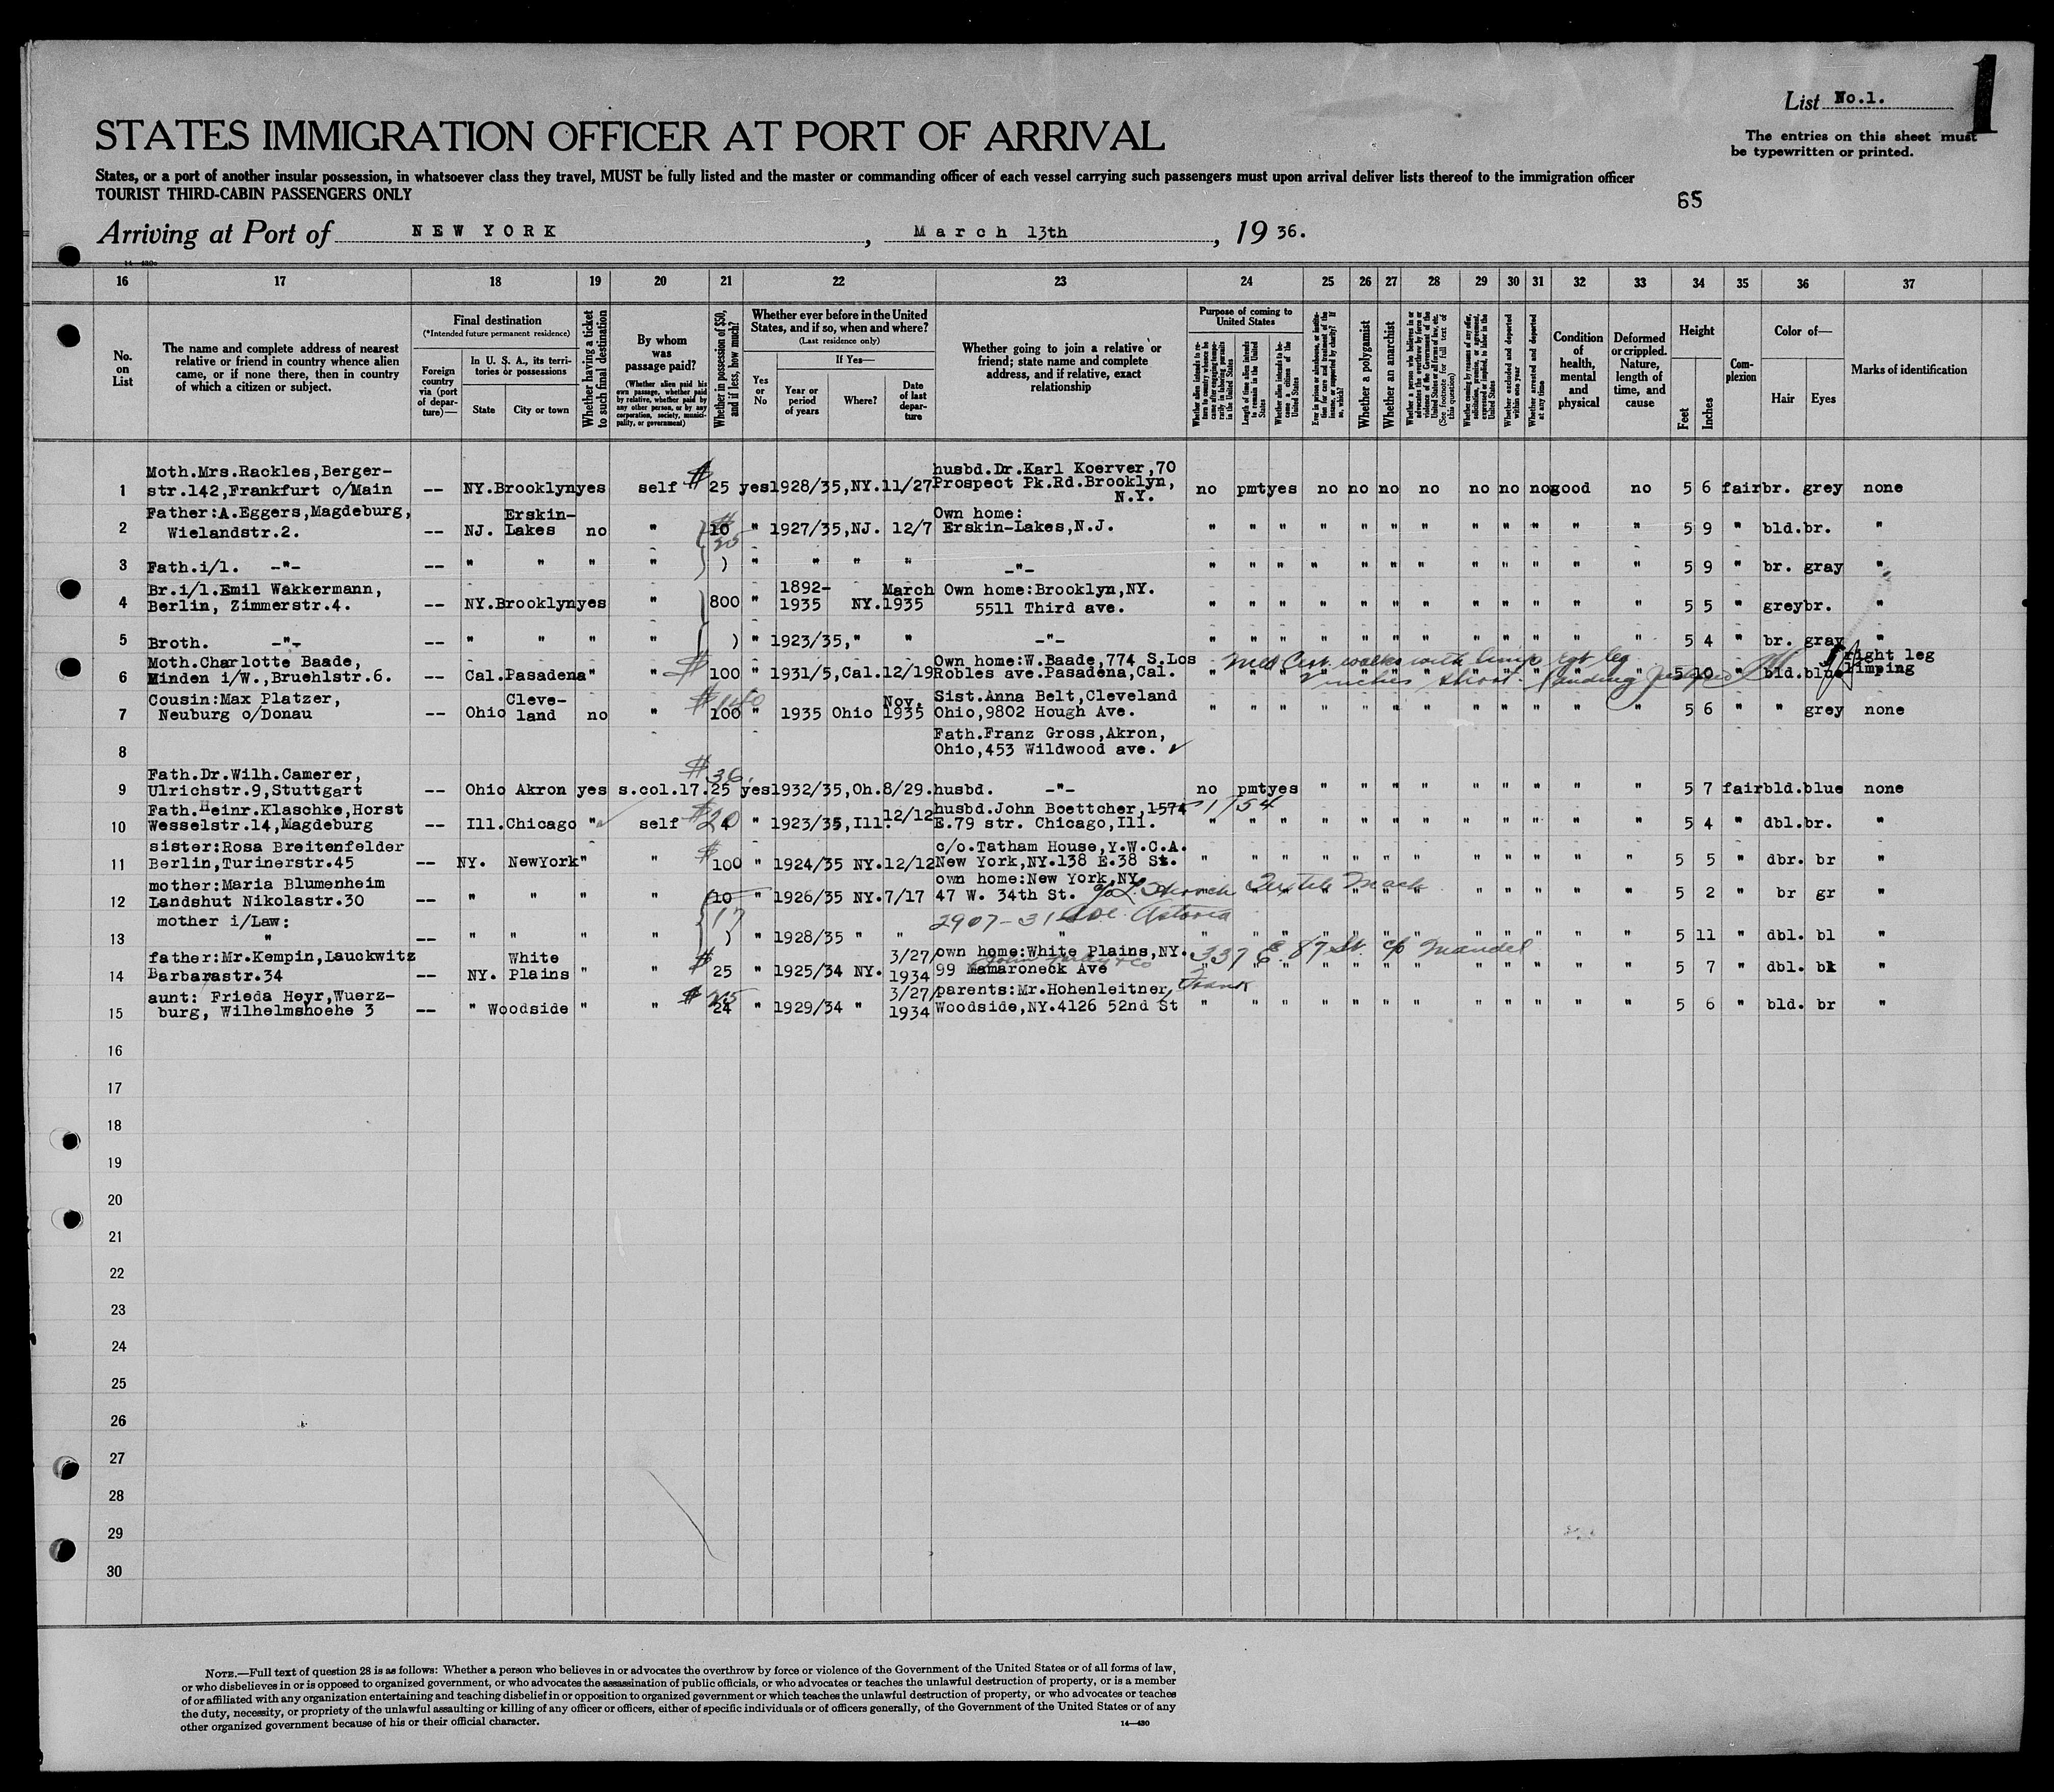 1
List No.1.
STATES IMMIGRATION OFFICER AT PORT OF ARRIVAL
The entries on this sheet must
be typewritten or printed.
States, or a port of another insular possession, in whatsoever class they travel, MUST be fully listed and the master or commanding officer of each vessel carrying such passengers must upon arrival deliver lists thereof to the immigration officer
TOURIST THIRD-CABIN PASSENGERS ONLY
65
Arriving at Port of NEW YORK, March 13th, 19 36.
16 17 18 19 20 21 22 23 24 25 26 27 28 29 30 31 32 33 34 35 36 37
No. on List
The name and complete address of nearest relative or friend in country whence alien came, or if none there, then in country of which a citizen or subject.
Final destination
(*Intended future permanent residence)
Foreign country via (port of departure)—
In U. S. A., its territories or possessions
State
City or town
Whether having a ticket to such final destination
By whom was passage paid?
(Whether alien paid his own passage, whether paid by relative, whether paid by any other person, or by any corporation, society, municipality, or government)
Whether in possession of $50, and if less, how much?
Whether ever before in the United States, and if so, when and where?
(Last residence only)
Yes or No
If Yes—
Year or period of years
Where?
Date of last departure
Whether going to join a relative or friend; state name and complete address, and if relative, exact relationship
Purpose of coming to United States
Length of time alien intends to remain in the United States
Whether alien intends to become a citizen of the United States
Whether a polygamist
Whether an anarchist
Whether excluded and deported within one year
Whether arrested and deported at any time
Condition of health, mental and physical
Deformed or crippled. Nature, length of time, and cause
Height
Feet
Inches
Complexion
Color of—
Hair
Eyes
Marks of identification
Moth.Mrs.Rackles,Berger- $ husbd.Dr.Karl Koerver,70
1 str.142,Frankfurt o/Main -- NY. Brooklyn yes self 25 yes 1928/35,NY. 11/27 Prospect Pk.Rd.Brooklyn, N.Y. no pmt yes no no no no no no no good no 5 6 fair br. grey none
Father:A.Eggers,Magdeburg, Erskin- Own home:
2 Wielandstr.2. -- NJ. Lakes no " 10 " 1927/35,NJ. 12/7 Erskin-Lakes,N.J. " " " " " " " " " " " " 5 9 " bld. br. "
3 Fath.i/l. -"- -- " " " " ) " " " " -"- " " " " " " " " " " " " 5 9 " br. gray "
Br.i/l.Emil Wakkermann, 1892- March Own home:Brooklyn,NY.
4 Berlin, Zimmerstr.4. -- NY. Brooklyn yes " 800 " 1935 NY. 1935 5511 Third ave. " " " " " " " " " " " " 5 5 " grey br. "
5 Broth. -"- -- " " " " ) " 1923/35, " " -"- " " " " " " " " " " " " 5 4 " br. gray "
Moth.Charlotte Baade, $ Own home:W.Baade,774 S.Los Med Cert walks with limp rgt leg right leg
6 Minden i/W.,Bruehlstr.6. -- Cal. Pasadena " " 100 " 1931/5,Cal. 12/19 Robles ave.Pasadena,Cal. 2 inches short 5 10 " bld. blue limping
Cousin:Max Platzer, Cleve- $140 Nov. Sist.Anna Belt,Cleveland
7 Neuburg o/Donau -- Ohio land no " 100 " 1935 Ohio 1935 Ohio,9802 Hough Ave. " " " " " " " " " " " " 5 6 " " grey none
Fath.Franz Gross,Akron,
8 Ohio,453 Wildwood ave. ✓
Fath.Dr.Wilh.Camerer, $36.
9 Ulrichstr.9,Stuttgart -- Ohio Akron yes s.col.17. 25 yes 1932/35,Oh. 8/29. husbd. -"- no pmt yes " " " " " " " " " 5 7 fair bld. blue none
Fath.Heinr.Klaschke,Horst $20 12/12 husbd.John Boettcher,1574 1754
10 Wesselstr.14,Magdeburg -- Ill. Chicago " self 4 " 1923/35,Ill. E.79 str. Chicago,Ill. " " " " " " " " " " " " 5 4 " dbl. br. "
sister:Rosa Breitenfelder $ c/o.Tatham House,Y.W.C.A.
11 Berlin,Turinerstr.45 -- NY. NewYork " " 100 " 1924/35 NY. 12/12 New York,NY.138 E.38 St. " " " " " " " " " " " " 5 5 " dbr. br "
mother:Maria Blumenheim own home:New York,NY.
12 Landshut Nikolastr.30 -- " " " " 10 " 1926/35 NY. 7/17 47 W. 34th St. " " " " " " " " " 5 2 " br gr "
mother i/Law: 17 2907-31 Ave. Astoria
13 " -- " " " " ) " 1928/35 " " " " " " " " " " " " " " " 5 11 " dbl. bl "
father:Mr.Kempin,Lauckwitz White $ 3/27/ own home:White Plains,NY. 337 E. 87 St. c/o Mandel
14 Barbarastr.34 -- NY. Plains " " 25 " 1925/34 NY. 1934 99 Mamaroneck Ave " " " " " " " " " " " " 5 7 " dbl. bk "
aunt: Frieda Heyr,Wuerz- $ 3/27/ parents:Mr.Hohenleitner, Frank
15 burg, Wilhelmshoehe 3 -- " Woodside " " 24 " 1929/34 " 1934 Woodside,NY.4126 52nd St " " " " " " " " " " " " 5 6 " bld. br "
16
17
18
19
20
21
22
23
24
25
26
27
28
29
30
NOTE.—Full text of question 28 is as follows: Whether a person who believes in or advocates the overthrow by force or violence of the Government of the United States or of all forms of law,
or who disbelieves in or is opposed to organized government, or who advocates the assassination of public officials, or who advocates or teaches the unlawful destruction of property, or is a member
of or affiliated with any organization entertaining and teaching disbelief in or opposition to organized government or which teaches the unlawful destruction of property, or who advocates or teaches
the duty, necessity, or propriety of the unlawful assaulting or killing of any officer or officers, either of specific individuals or of officers generally, of the Government of the United States or of any
other organized government because of his or their official character.
14—430